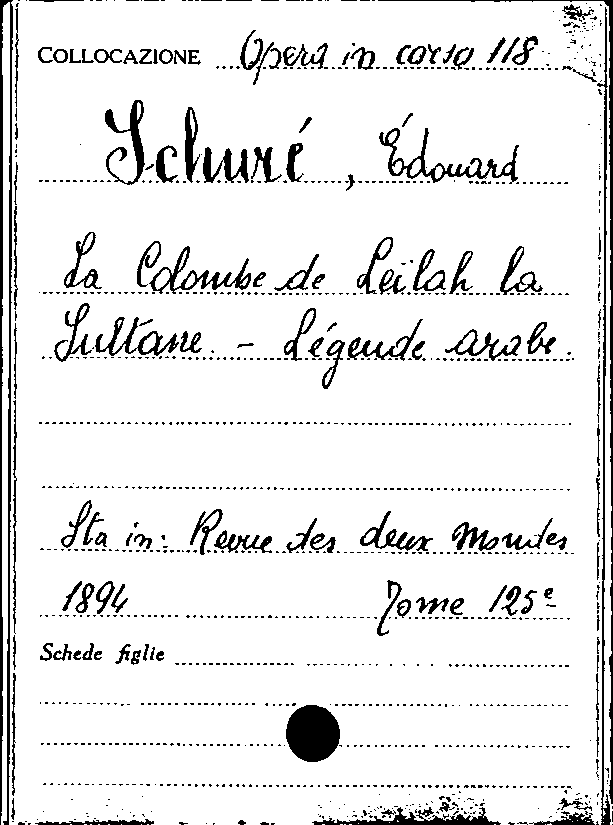 COLLOCAZIONE Opera in corso 118
Schuré, Édouard
La Colombe de Leïlah la
Sultane. - Légende arabe.
Sta in: Revue des deux Mondes
1894 Tome 125e
Schede figlie